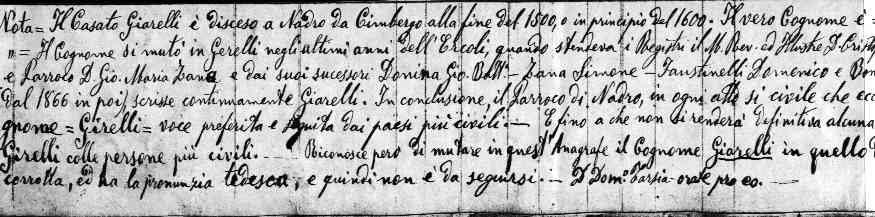 Nota = Il Casato Giarelli è disceso a Nadro da Cimbergo alla fine del 1500, o in principio del 1600. Il vero Cognome è =
"= Il Cognome si mutò in Gerelli negli ultimi anni dell'Ercoli, quando stendeva i Registri il M. Rev. ed Illustre D. Cristo
e Parroco D. Gio. Maria Zana e dai suoi sucessori Donina Gio. Batt. - Zana Simone - Faustinelli Domenico e Bon
Dal 1866 in poi, scrisse continuamente Giarelli. In conclusione, il Parroco di Nadro, in ogni atto si civile che ecc
gnome = Girelli = voce preferita e seguita dai paesi più civili. - E fino a che non si renderà definitiva alcuna
Girelli colle persone più civili. - Riconosce però di mutare in quest'Anagrafe il Cognome Giarelli in quello
corrotta, ed ha la pronunzia tedesca, e quindi non è da seguirsi. - D. Dom.º Tarsia - orate pro eo. -